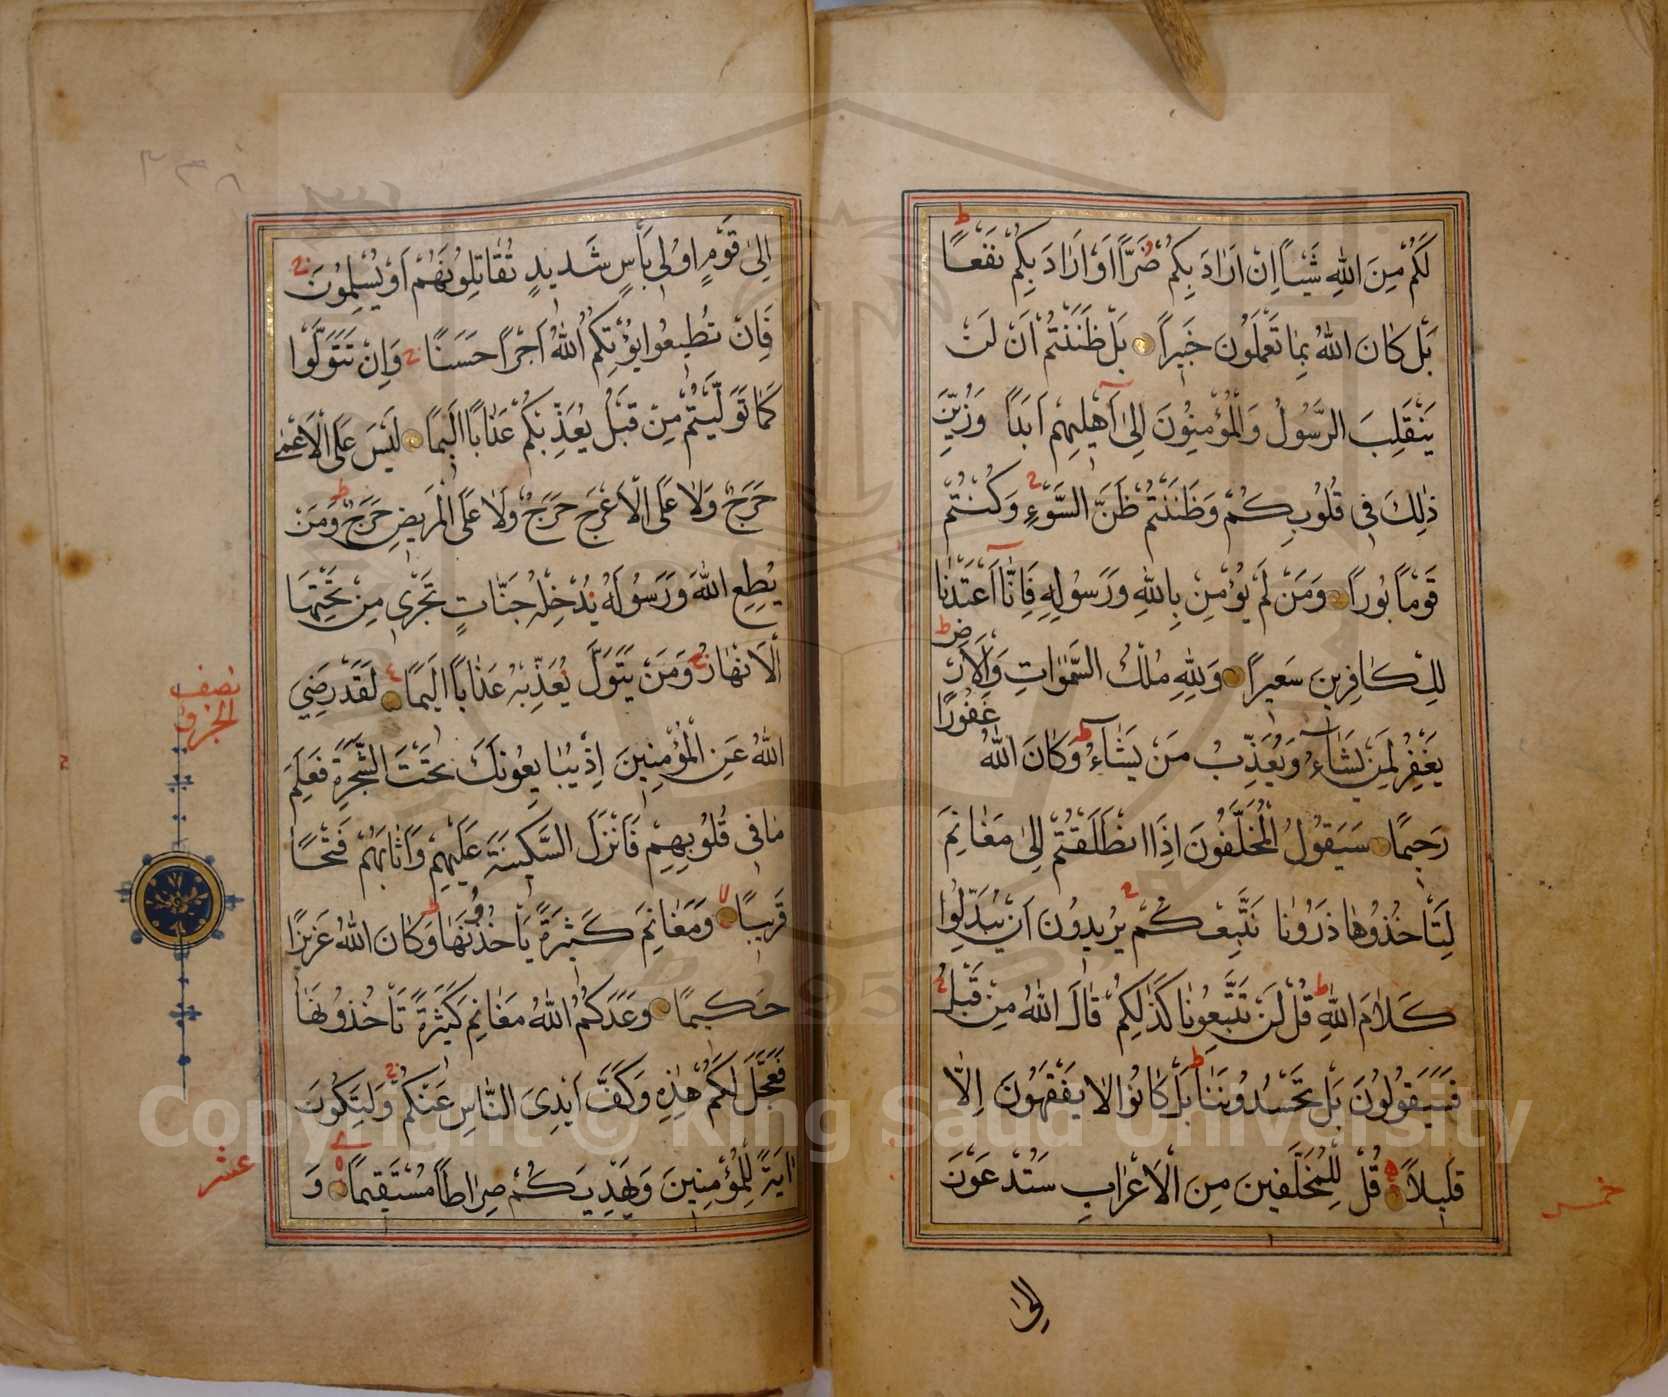 لَكُمْ مِنَ اللهِ شَيْـًٔا اِنْ اَرَادَ بِكُمْ ضَرًّا اَوْ اَرَادَ بِكُمْ نَفْعًا ط
بَلْ كَانَ اللهُ بِمَا تَعْمَلُونَ خَبِيرًا بَلْ ظَنَنْتُمْ اَنْ لَنْ
يَنْقَلِبَ الرَّسُولُ وَالْمُؤْمِنُونَ اِلٰى اَهْلِيهِمْ اَبَدًا وَزُيِّنَ
ذٰلِكَ فِى قُلُوبِكُمْ وَظَنَنْتُمْ ظَنَّ السَّوْءِ وَكُنْتُمْ
قَوْمًا بُورًا وَمَنْ لَمْ يُؤْمِنْ بِاللهِ وَرَسُولِهِ فَاِنَّا اَعْتَدْنَا
لِلْكَافِرِينَ سَعِيرًا وَلِلّٰهِ مُلْكُ السَّمٰوَاتِ وَالْاَرْضِ ط
يَغْفِرُ لِمَنْ يَشَاءُ وَيُعَذِّبُ مَنْ يَشَاءُ ط وَكَانَ اللهُ غَفُورًا
رَحِيمًا سَيَقُولُ الْمُخَلَّفُونَ اِذَا انْطَلَقْتُمْ اِلٰى مَغَانِمَ
لِتَأْخُذُوهَا ذَرُونَا نَتَّبِعْكُمْ يُرِيدُونَ اَنْ يُبَدِّلُوا
كَلَامَ اللهِ ط قُلْ لَنْ تَتَّبِعُونَا كَذٰلِكُمْ قَالَ اللهُ مِنْ قَبْلُ
فَسَيَقُولُونَ بَلْ تَحْسُدُونَنَا ط بَلْ كَانُوا لَا يَفْقَهُونَ اِلَّا
قَلِيلًا قُلْ لِلْمُخَلَّفِينَ مِنَ الْاَعْرَابِ سَتُدْعَوْنَ
خمس
اِلٰى
٢٣٨
اِلٰى قَوْمٍ اُولِى بَأْسٍ شَدِيدٍ تُقَاتِلُونَهُمْ اَوْ يُسْلِمُونَ
فَاِنْ تُطِيعُوا يُؤْتِكُمُ اللهُ اَجْرًا حَسَنًا وَاِنْ تَتَوَلَّوْا
كَمَا تَوَلَّيْتُمْ مِنْ قَبْلُ يُعَذِّبْكُمْ عَذَابًا اَلِيمًا لَيْسَ عَلَى الْاَعْمٰى
حَرَجٌ وَلَا عَلَى الْاَعْرَجِ حَرَجٌ وَلَا عَلَى الْمَرِيضِ حَرَجٌ ط وَمَنْ
يُطِعِ اللهَ وَرَسُولَهُ يُدْخِلْهُ جَنَّاتٍ تَجْرِى مِنْ تَحْتِهَا
الْاَنْهَارُ وَمَنْ يَتَوَلَّ يُعَذِّبْهُ عَذَابًا اَلِيمًا لَقَدْ رَضِيَ
اللهُ عَنِ الْمُؤْمِنِينَ اِذْ يُبَايِعُونَكَ تَحْتَ الشَّجَرَةِ فَعَلِمَ
مَا فِى قُلُوبِهِمْ فَاَنْزَلَ السَّكِينَةَ عَلَيْهِمْ وَاَثَابَهُمْ فَتْحًا
قَرِيبًا وَمَغَانِمَ كَثِيرَةً يَأْخُذُونَهَا ط وَكَانَ اللهُ عَزِيزًا
حَكِيمًا وَعَدَكُمُ اللهُ مَغَانِمَ كَثِيرَةً تَأْخُذُونَهَا
فَعَجَّلَ لَكُمْ هٰذِهِ وَكَفَّ اَيْدِىَ النَّاسِ عَنْكُمْ وَلِتَكُونَ
اٰيَةً لِلْمُؤْمِنِينَ وَيَهْدِيَكُمْ صِرَاطًا مُسْتَقِيمًا وَ
نصف
الحزب
عشر
Copyright © King Saud University